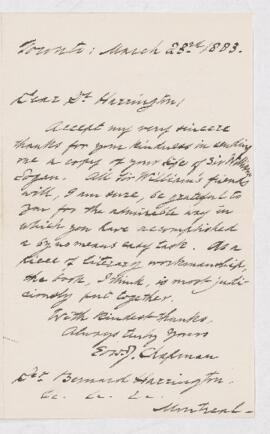 Toronto: March 28th 1883.
Dear Dr. Harrington,
Accept my very sincere
thanks for your kindness in sending
me a copy of your Life of Sir William
Logan. All Sir William's friends
will, I am sure, be grateful to
you for the admirable way in
which you have accomplished
a by no means easy task. As a
piece of literary workmanship,
the book, I think, is most judi-
ciously put together.
With kindest thanks,
Always truly yours
Edw. J. Chapman
Dr. Bernard Harrington,
&c. &c. &c.
Montreal—